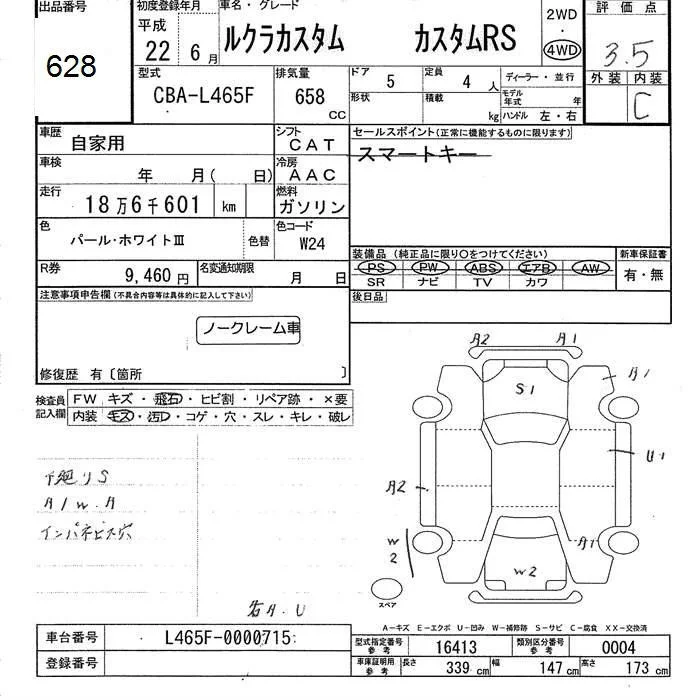 出品番号
628
初度登録年月
平成
22年 6月
車名・グレード
ルクラカスタム カスタムRS
2WD
・
4WD
評価点
3.5
外装 内装
C
型式
CBA-L465F
排気量
658 CC
ドア 5
定員 4人
ディーラー・並行
形状
積載 kg
モデル年式 年
ハンドル 左・右
車歴 自家用
シフト CAT
車検 年 月( 日)
冷房 AAC
走行 18万6千601 km
燃料 ガソリン
色 パール・ホワイトⅢ 色替
色コード W24
R券 9,460円
名変通知期限 月 日
セールスポイント(正常に機能するものに限ります)
スマートキー
装備品 (純正品に限り〇をつけてください)
PS PW ABS エアB AW
SR ナビ TV カワ
新車保証書
有・無
後日品
注意事項申告欄(不具合内容等は具体的に記入して下さい)
ノークレーム車
修復歴 有〔箇所 〕
検査員記入欄
FW キズ・飛石・ヒビ割・リペア跡・×要
内装 キズ・汚レ・コゲ・穴・スレ・キレ・破レ
下廻りS
A/W.A
インパネビス穴
各A.U
A2 A1
S1
A1
U1
A2
A1
W2
W2
スペア
A-キズ E-エクボ U-凹み W-補修跡 S-サビ C-腐食 XX-交換済
車台番号 L465F-0000715
登録番号
型式指定番号 参考 16413
類別区分番号 参考 0004
車庫証明用 参考 長さ 339cm 幅 147cm 高さ 173cm